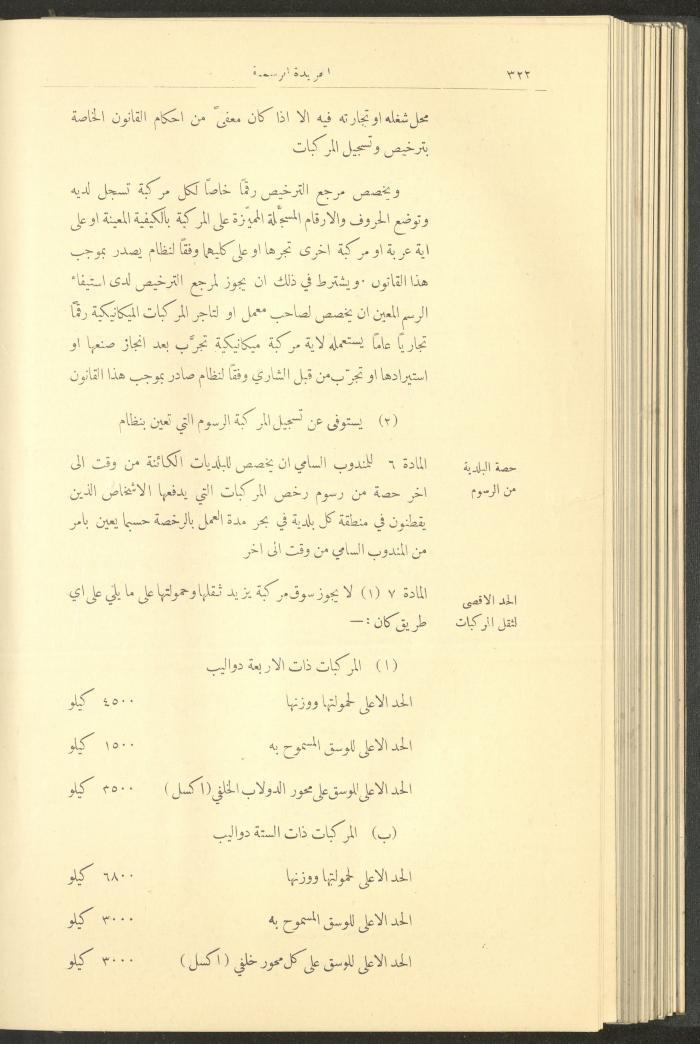 ٣٢٢
الجريدة الرسمية
محل شغله او تجارته فيه الا اذا كان معفىً من احكام القانون الخاصة
بترخيص وتسجيل المركبات
ويخصص مرجع الترخيص رقمًا خاصًا لكل مركبة تسجل لديه
وتوضع الحروف والارقام المسجَّلة المميّزة على المركبة بالكيفية المعينة او على
اية عربة او مركبة اخرى تجرها او على كليهما وفقًا لنظام يصدر بموجب
هذا القانون . ويشترط في ذلك ان يجوز لمرجع الترخيص لدى استيفاء
الرسم المعين ان يخصص لصاحب معمل او لتاجر المركبات الميكانيكية رقمًا
تجاريًا عامًا يستعمله لاية مركبة ميكانيكية تجرَّب بعد انجاز صنعها او
استيرادها او تجرّب من قبل الشاري وفقًا لنظام صادر بموجب هذا القانون
(٢) يستوفى عن تسجيل المركبة الرسوم التي تعين بنظام
حصة البلدية
من الرسوم
المادة ٦ للمندوب السامي ان يخصص للبلديات الكائنة من وقت الى
اخر حصة من رسوم رخص المركبات التي يدفعها الاشخاص الذين
يقطنون في منطقة كل بلدية في بحر مدة العمل بالرخصة حسبما يعين بامر
من المندوب السامي من وقت الى اخر
الحد الاقصى
لثقل المركبات
المادة ٧ (١) لا يجوز سوق مركبة يزيد ثقلها وحمولتها على ما يلي على اي
طريق كان :—
(ا) المركبات ذات الاربعة دواليب
الحد الاعلى لحمولتها ووزنها ٤٥٠٠ كيلو
الحد الاعلى للوسق المسموح به ١٥٠٠ كيلو
الحد الاعلى للوسق على محور الدولاب الخلفي (اكسل) ٣٥٠٠ كيلو
(ب) المركبات ذات الستة دواليب
الحد الاعلى لحمولتها ووزنها ٦٨٠٠ كيلو
الحد الاعلى للوسق المسموح به ٣٠٠٠ كيلو
الحد الاعلى للوسق على كل محور خلفي (اكسل) ٣٠٠٠ كيلو